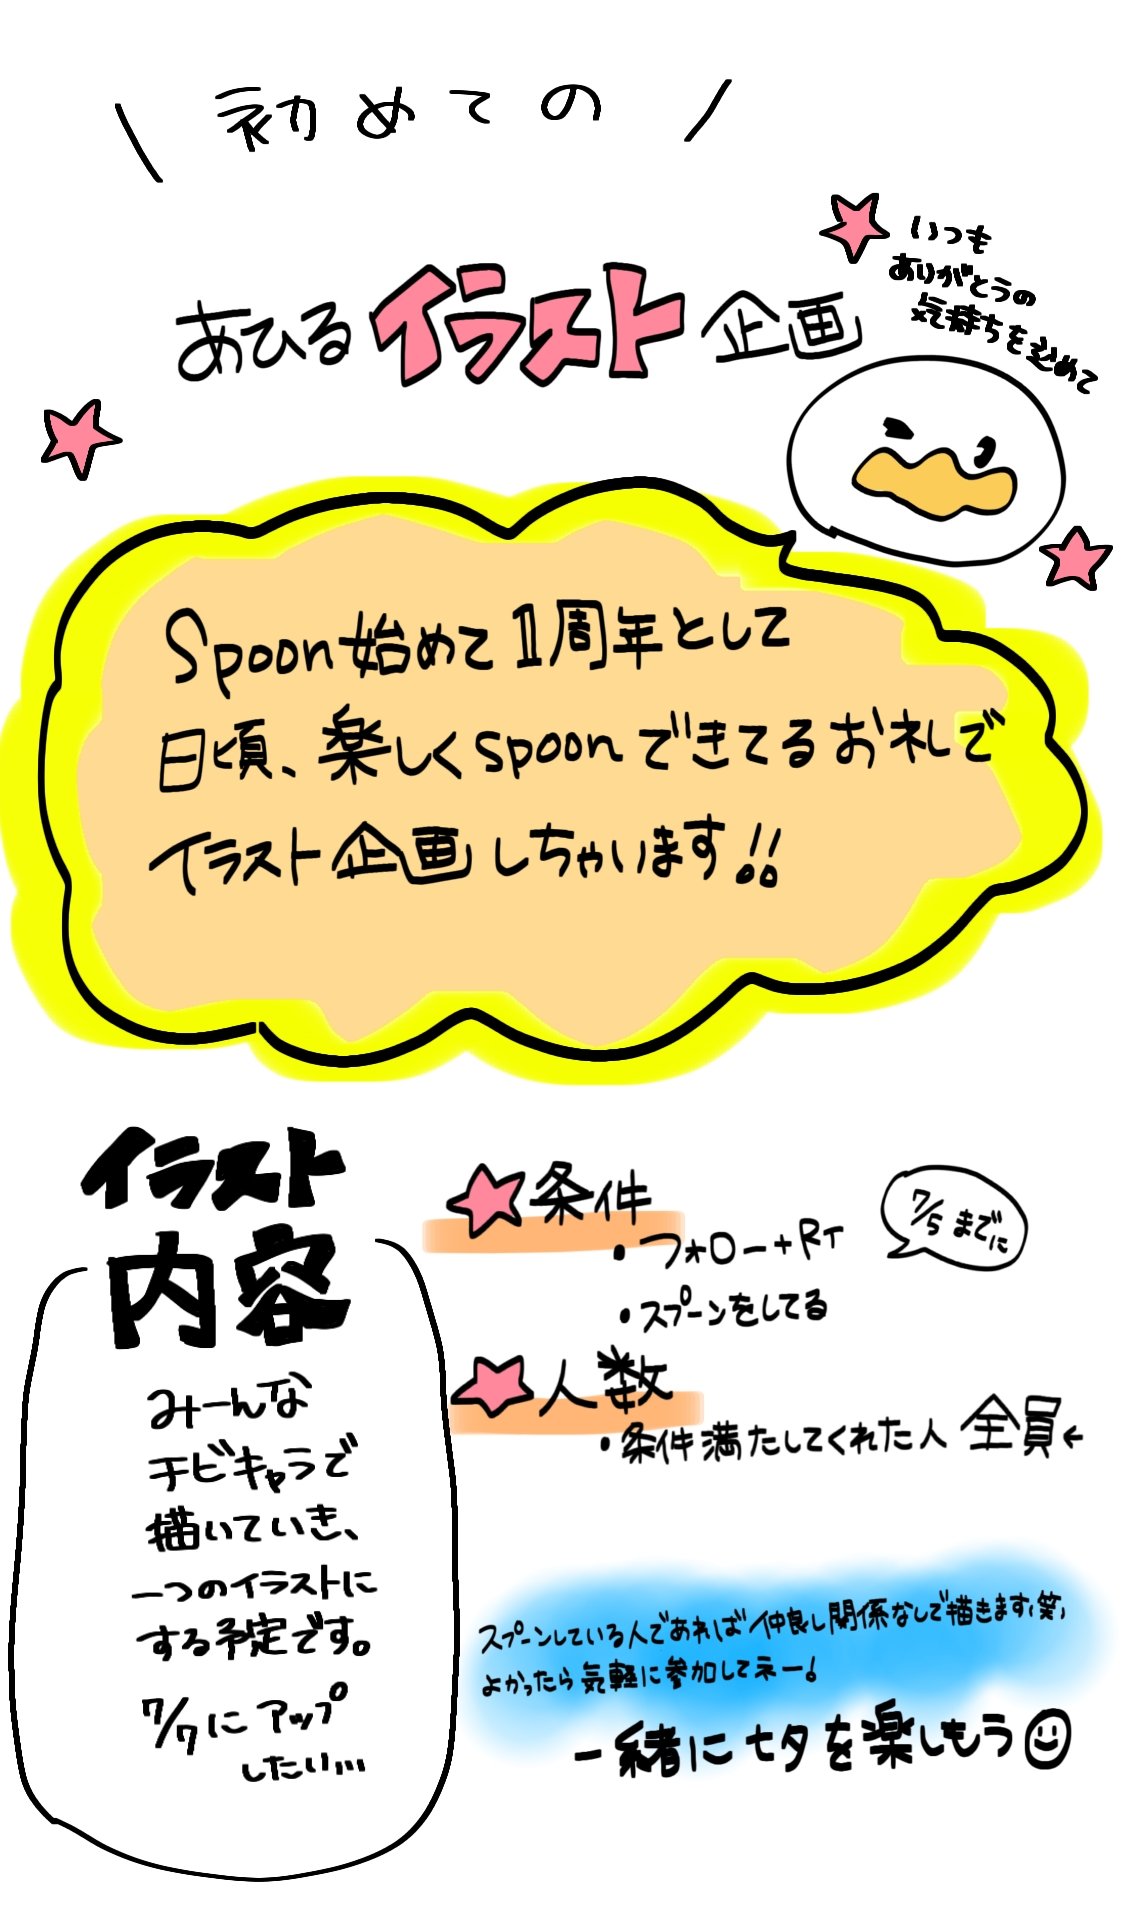 \ 初めての /
あひるイラスト企画
いつも
ありがとうの
気持ちを込めて
Spoon始めて1周年として
日頃、楽しくspoonできてるお礼で
イラスト企画しちゃいます!!
イラスト
内容
みーんな
チビキャラで
描いていき、
一つのイラストに
する予定です。
7/7にアップ
したい...
条件
・フォロー+RT
7/5までに
・スプーンをしてる
人数
・条件満たしてくれた人 全員←
スプーンしている人であれば仲良し関係なしで描きます(笑)
よかったら気軽に参加してネー!
一緒に七夕を楽しもう☺